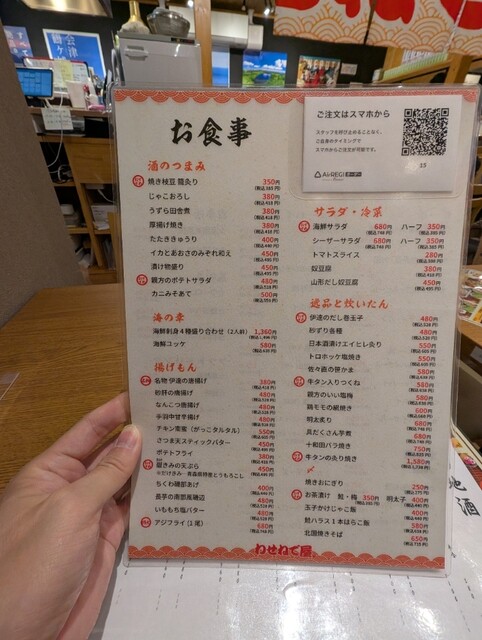 会津
鶴ヶ
お食事
ご注文はスマホから
スタッフを呼び止めることなく、
ご自身のタイミングで
スマホからご注文が可能です。
AirREGI オーダー
25
酒のつまみ
焼き枝豆 籠灸り 350円
じゃこおろし 380円
うずら田舎煮 380円
厚揚げ焼き 380円
たたききゅうり 400円
イカとあおさのみぞれ和え 450円
漬け物盛り 450円
親方のポテトサラダ 480円
カニみそあて 500円
海の幸
海鮮刺身4種盛り合わせ(2人前) 1,360円
海鮮ユッケ 580円
揚げもん
名物 伊達の唐揚げ 380円
砂肝の唐揚げ 480円
なんこつ唐揚げ 480円
手羽中甘辛揚げ 480円
チキン南蛮(がっこタルタル) 550円
さつま天スティックバター 450円
ポテトフライ 450円
嶽きみの天ぷら 450円
ちくわ磯部あげ 400円
長芋の南部風磯辺 480円
いももち塩バター 480円
アジフライ(1尾) 680円
サラダ・冷菜
海鮮サラダ 680円 ハーフ 350円
シーザーサラダ 680円 ハーフ 350円
トマトスライス 280円
奴豆腐 380円
山形だし奴豆腐 450円
逸品と炊いたん
伊達のだし巻玉子 480円
砂ずり各種 480円
日本酒漬けエイヒレ灸り 550円
トロホッケ塩焼き 550円
佐々直の笹かま 580円
牛タン入りつくね 580円
親方のいい塩梅 580円
鶏モモの網焼き 600円
明太炙り 680円
具だくさん芋煮 680円
十和田バラ焼き 750円
牛タンの灸り焼き 1,580円
〆
焼きおにぎり 250円
お茶漬け 鮭・梅 350円 明太子 400円
玉子かけじゃこ飯 400円
鮭ハラス1本はらこ飯 580円
北国焼きそば 650円
わせねで屋
地酒